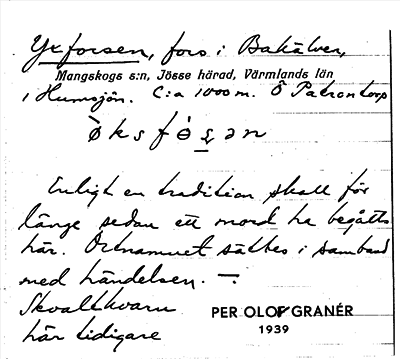 Yxforsen, fors i Bakälven,
Mangskogs s:n, Jösse härad, Värmlands län
i Humsjön. C:a 1000 m. Ö Patrontorp
Enligt en tradition skall för
länge sedan ett mord ha begåtts
här. Ortnamnet sättes i samband
med händelsen. —
Skvaltkvarn
här tidigare
PER OLOF GRANÉR
1939